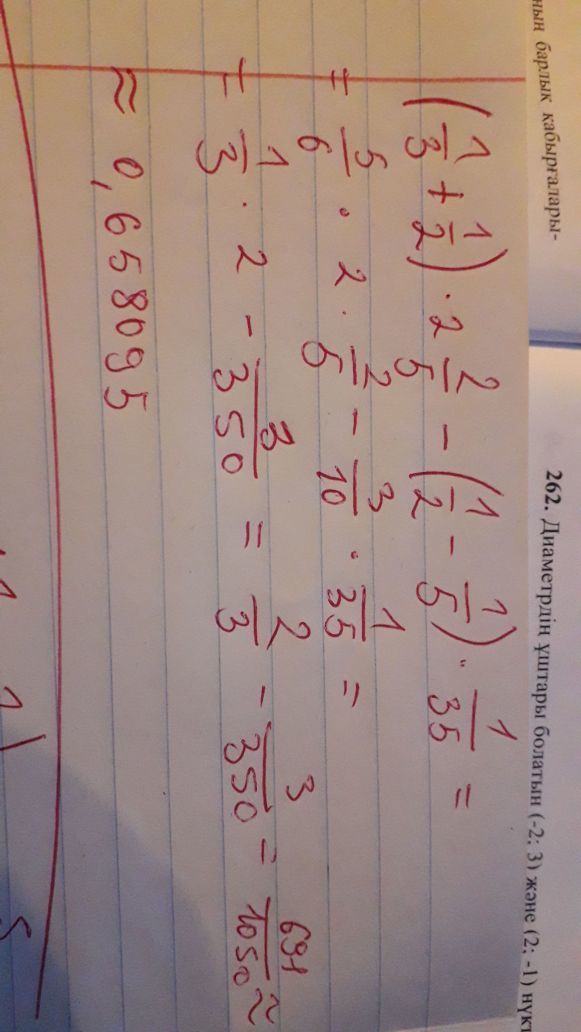 ның барлық қабырғалары-
262. Диаметрдің ұштары болатын (-2; 3) және (2; -1) нүкт
(1/3 + 1/2) · 2 2/5 - (1/2 - 1/5) · 1/35 =
= 5/6 · 2 · 2/5 - 3/10 · 1/35 =
= 1/3 · 2 - 3/350 = 2/3 - 3/350 = 691/1050 ≈
≈ 0,658095